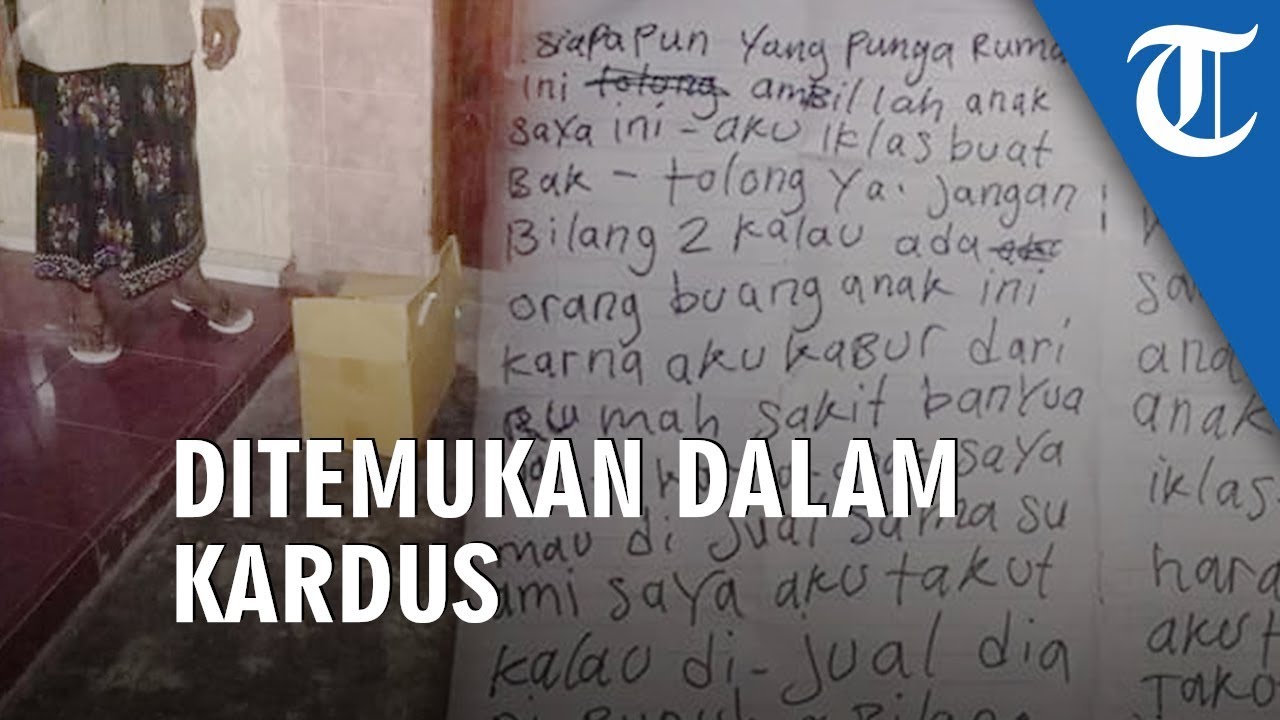 siapapun yang punga Ruma
ini tolong amBillah anak
saya ini - aku iklas buat
Bak - tolong ya. jangan
Bilang 2 kalau ada
orang buang anak ini
karna aku kaBur dari
Rumah sakit banyua
saya
mau di jual sama su
ami saya aku takut
kalau di-jual dia
Bilang
sa
ana
anak
iklas
hara
aku t
Tako
T
DITEMUKAN DALAM
KARDUS